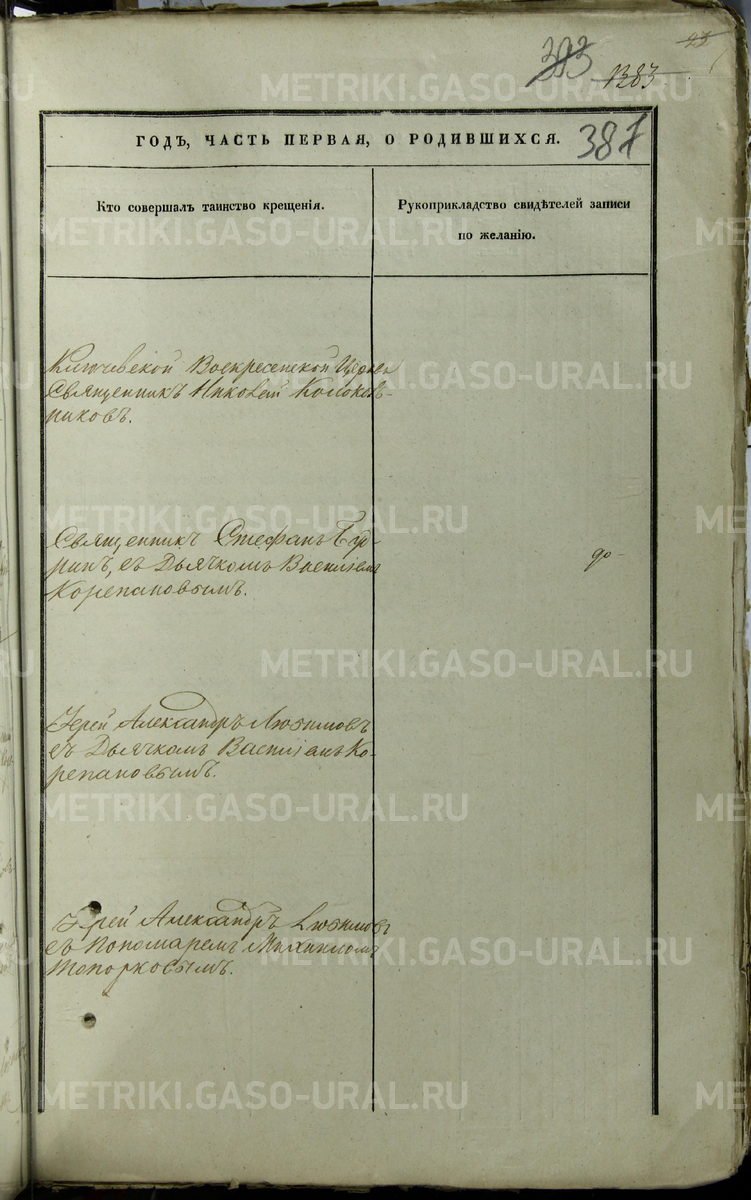 23
393
1383
387
ГОДЪ, ЧАСТЬ ПЕРВАЯ, О РОДИВШИХСЯ.
Кто совершалъ таинство крещенія.
Рукоприкладство свидѣтелей записи
по желанію.
Ключевской Воскресенской Церкви
Священникъ Николай Колоколь-
никовъ.
Священникъ Стефанъ
съ Дьячкомъ Василіемъ
Корепановымъ.
Іерей Александръ Любимовъ
съ Дьячкомъ Василіемъ Ко-
репановымъ.
Іерей Александръ Любимовъ
съ Пономаремъ Михаиломъ
Топорковымъ.
METRIKI.GASO-URAL.RU